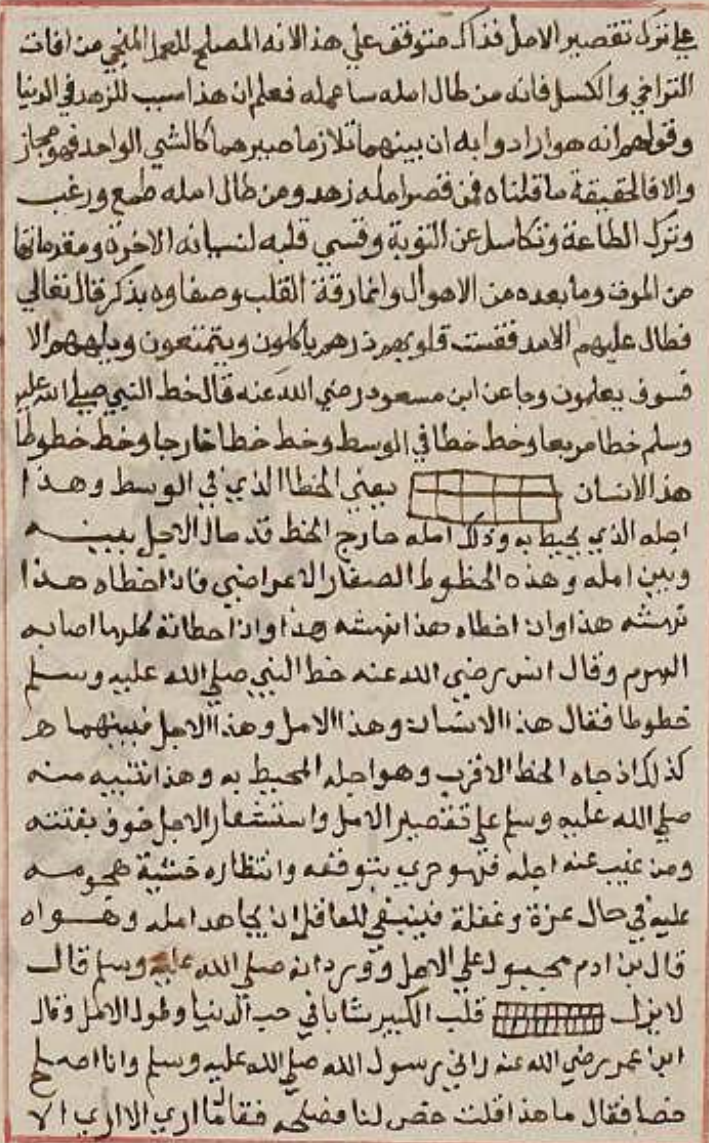 علي ترك تقصير الامل فذاك متوقف علي هذا لانه المصلح للعمل المنجي من افات
التراخي والكسل فانه من طال امله ساعمله فعلم ان هذا سبب للزهد في الدنيا
وقولهم انه هو ارادوا به ان بينهما تلازما صيرهما كالشي الواحد فهو مجاز
والا فالحقيقة ما قلناه فمن قصر امله زهد ومن طال امله طمع ورغب
وترك الطاعة وتكاسل عن التوبة وقسي قلبه لنسيانه الاخرة ومقدماتها
من الموت وما بعده من الاهوال وانما رقة القلب وصفاوه بذكر قال تعالي
فطال عليهم الامد فقست قلوبهم ذرهم ياكلون ويتمتعون ويلههم الا
فسوف يعلمون وجا عن ابن مسعود رضي الله عنه قال خط النبي صلي الله عليه
وسلم خطا مربعا وخط خطا في الوسط وخط خطا خارجا وخط خطوطا
هذا الانسان يعني الخطا الذي في الوسط وهذا
اجله الذي يحيط به وذلك امله خارج الخط قد حال الاجل بينه
وبين امله وهذه الخطوط الصغار الاعراضي فان اخطاه هذا
نهشه هذا وان اخطاه هذا نهشه هذا وان اخطاته كلها اصابه
الهرم وقال انس رضي الله عنه خط النبي صلي الله عليه وسلم
خطوطا فقال هذا الانسان وهذا الامل وهذا الاجل فبينهما هر
كذلك اذ جاه الخط الاقرب وهو اجله المحيط به وهذا تنبيه منه
صلي الله عليه وسلم علي تقصير الامل واستشعار الاجل خوف بغتته
ومن غيب عنه اجله فهو حري بتوقعه وانتظاره خشية هجومه
عليه في حال غرة وغفلة فينبغي للعاقل ان يجاهد امله وهواه
قال بن ادم مجبول علي الامل وورد انه صلي الله عليه وسلم قال
لا يزل قلب الكبير شابا في حب الدنيا وطول الامل وقال
ابن عمر رضي الله عنه راني رسول الله صلي الله عليه وسلم وانا اصلح
خصا فقال ما هذا قلت خص لنا نصلحه فقال ما اري الا اري الا